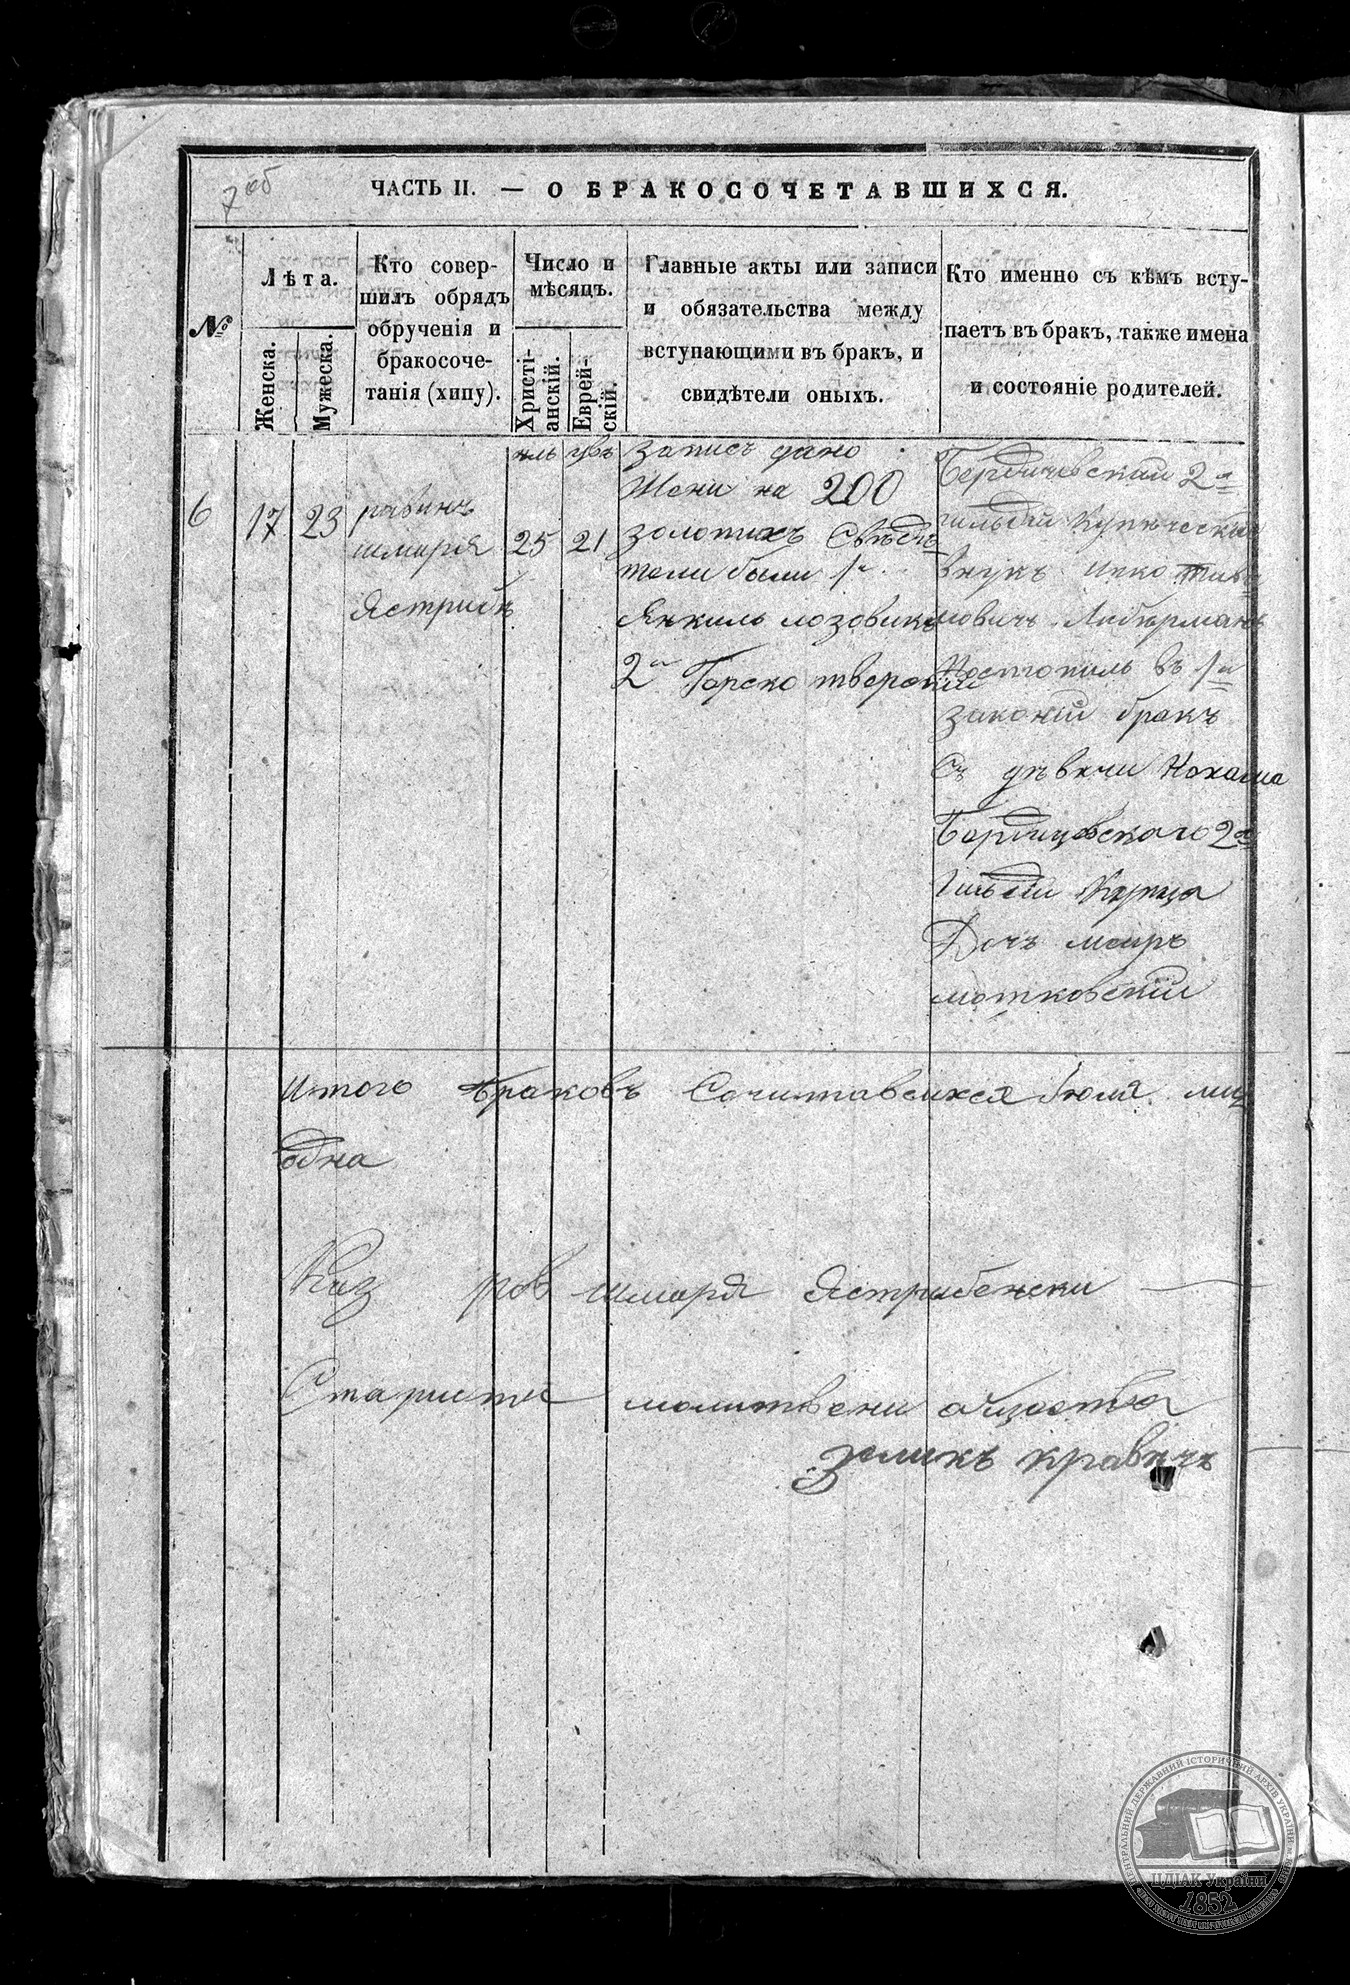 7 об
ЧАСТЬ II. — О БРАКОСОЧЕТАВШИХСЯ.
№
Лѣта.
Женска.
Мужеска.
Кто совер-
шилъ обрядъ
обрученія и
бракосоче-
танія (хипу).
Число и
мѣсяцъ.
Христі-
анскій.
Еврей-
скій.
Главные акты или записи
и обязательства между
вступающими въ бракъ, и
свидѣтели оныхъ.
Кто именно съ кѣмъ всту-
паетъ въ бракъ, также имена
и состояніе родителей.
6
17
23
равинъ
шмаря
Ястрибъ
25
21
запись дано
Жени на 200
золотихъ Свѣдѣ
тели были 1й
Янкиль лозовикъ
2й Гореко тверскии
Бердичевскии 2й
гильдіи Купическии
внукъ Ицко
мовичъ Либерманъ
въ 1й
законіи бракъ
Съ дѣвкчи Нохама
2й
гильдіи Купца
Дочъ меиръ
мотковскіи
Итого браковъ Сочитавсихся Іюля мц
одна
Каз рав шмаря Ястрибенски
Стариста молитвени общества
зеликъ кравецъ
ЦЕНТРАЛЬНИЙ ДЕРЖАВНИЙ ІСТОРИЧНИЙ АРХІВ УКРАЇНИ, м. КИЇВ
ЦДІАК України
1852